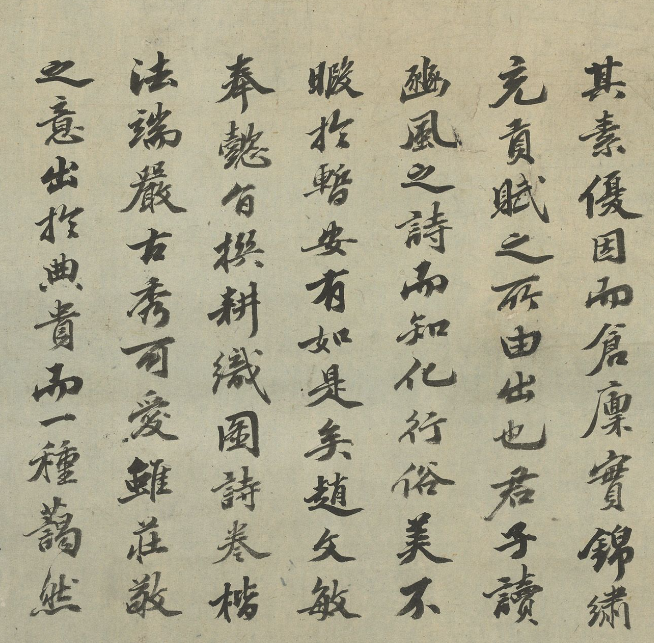 其素優因而倉廩實錦繡
充貢賦之所由出也君子讀
豳風之詩而知化行俗美不
暇於暫安有如是矣趙文敏
奉懿旨撰耕織圖詩卷楷
法端嚴古秀可愛雖莊敬
之意出於典貴而一種藹然